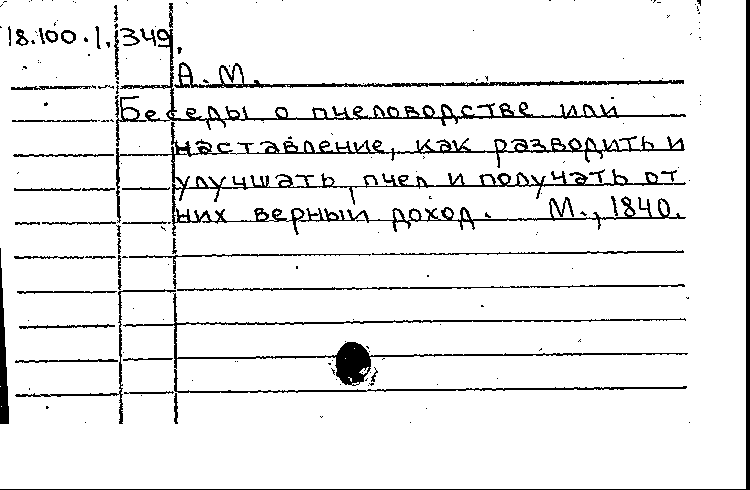 18.100.1.349.
А. М.
Беседы о пчеловодстве или
наставление, как разводить и
улучшать пчел и получать от
них верный доход. М., 1840.